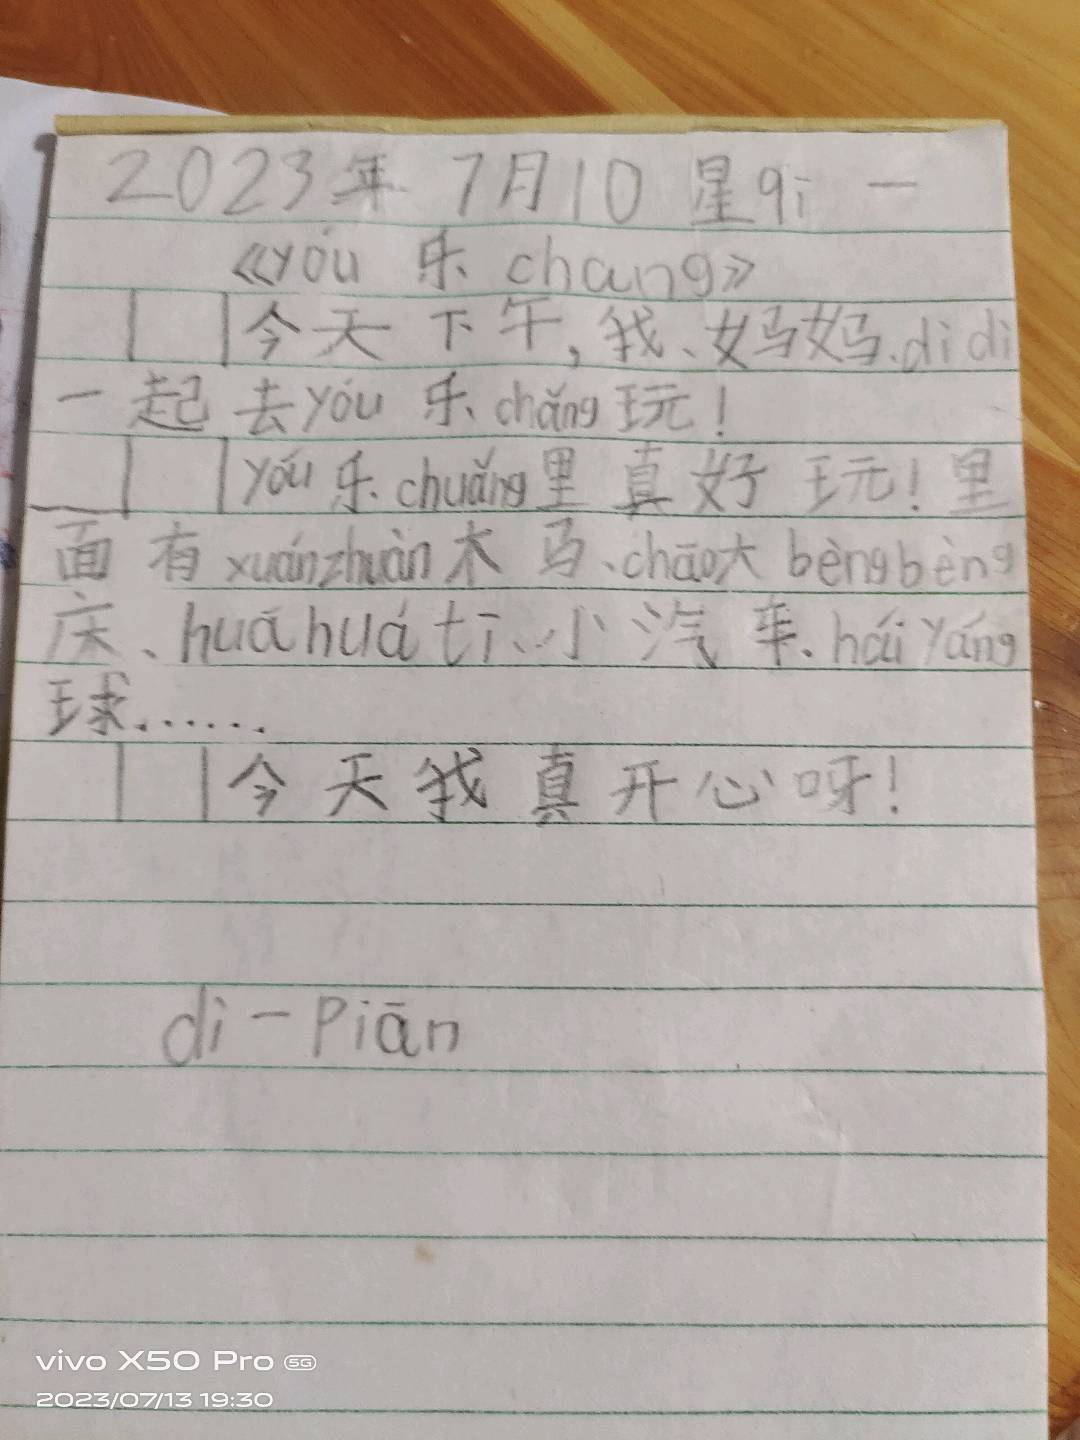 2023年 7月10 星qi 一
《yóu 乐 chang》
今天下午，我、妈妈、didi
一起去yóu 乐 chǎng玩！
yóu乐chuǎng里真好玩！里
面有xuánzhuàn木马、chāo大bèngbèng
床、huáhuátī、小汽车、háiyáng
球……
今天我真开心呀！
dì一Piān
vivo X50 Pro 5G
2023/07/13 19:30